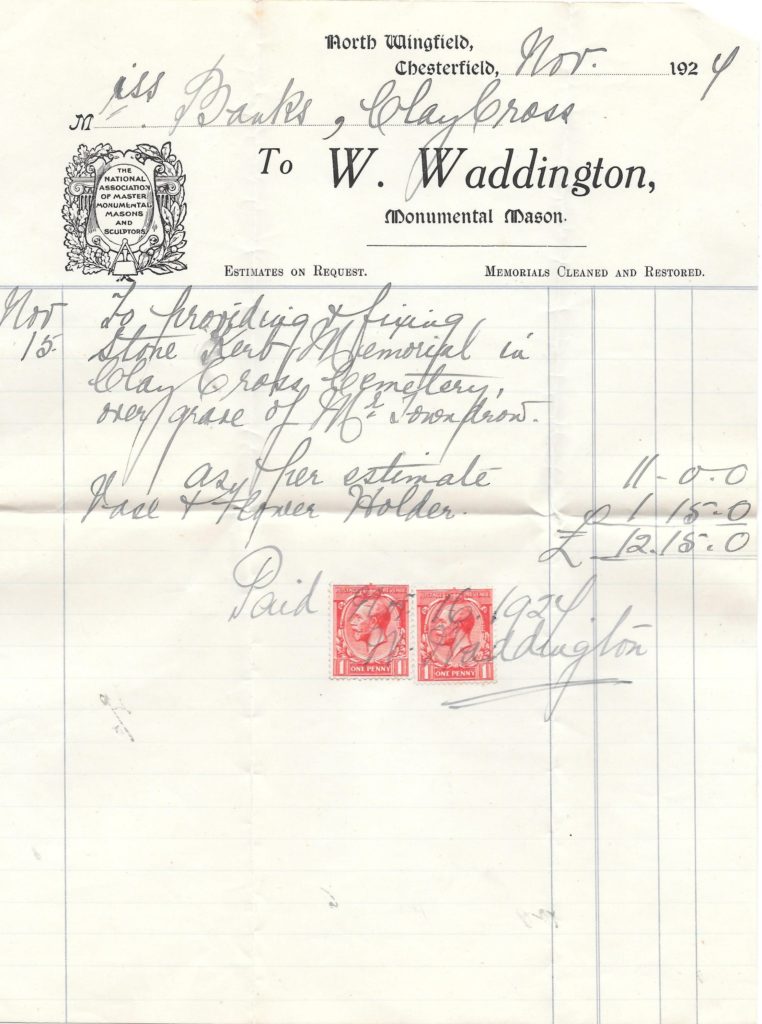 North Wingfield,
Chesterfield, Nov. 1924
Miss. Banks, Clay Cross
THE
NATIONAL
ASSOCIATION
OF MASTER
MONUMENTAL
MASONS
AND
SCULPTORS
To W. Waddington,
Monumental Mason.
Estimates on Request. Memorials Cleaned and Restored.
Nov To providing & fixing
15. Stone Kerb Memorial in
Clay Cross Cemetery,
over grave of Mr Towndrow.
as per estimate 11-0-0
Vase & Flower Holder. 1 15-0
£ 12.15-0
Paid Nov. 16, 1924
W. Waddington
POSTAGE REVENUE
1 ONE PENNY 1
POSTAGE REVENUE
1 ONE PENNY 1